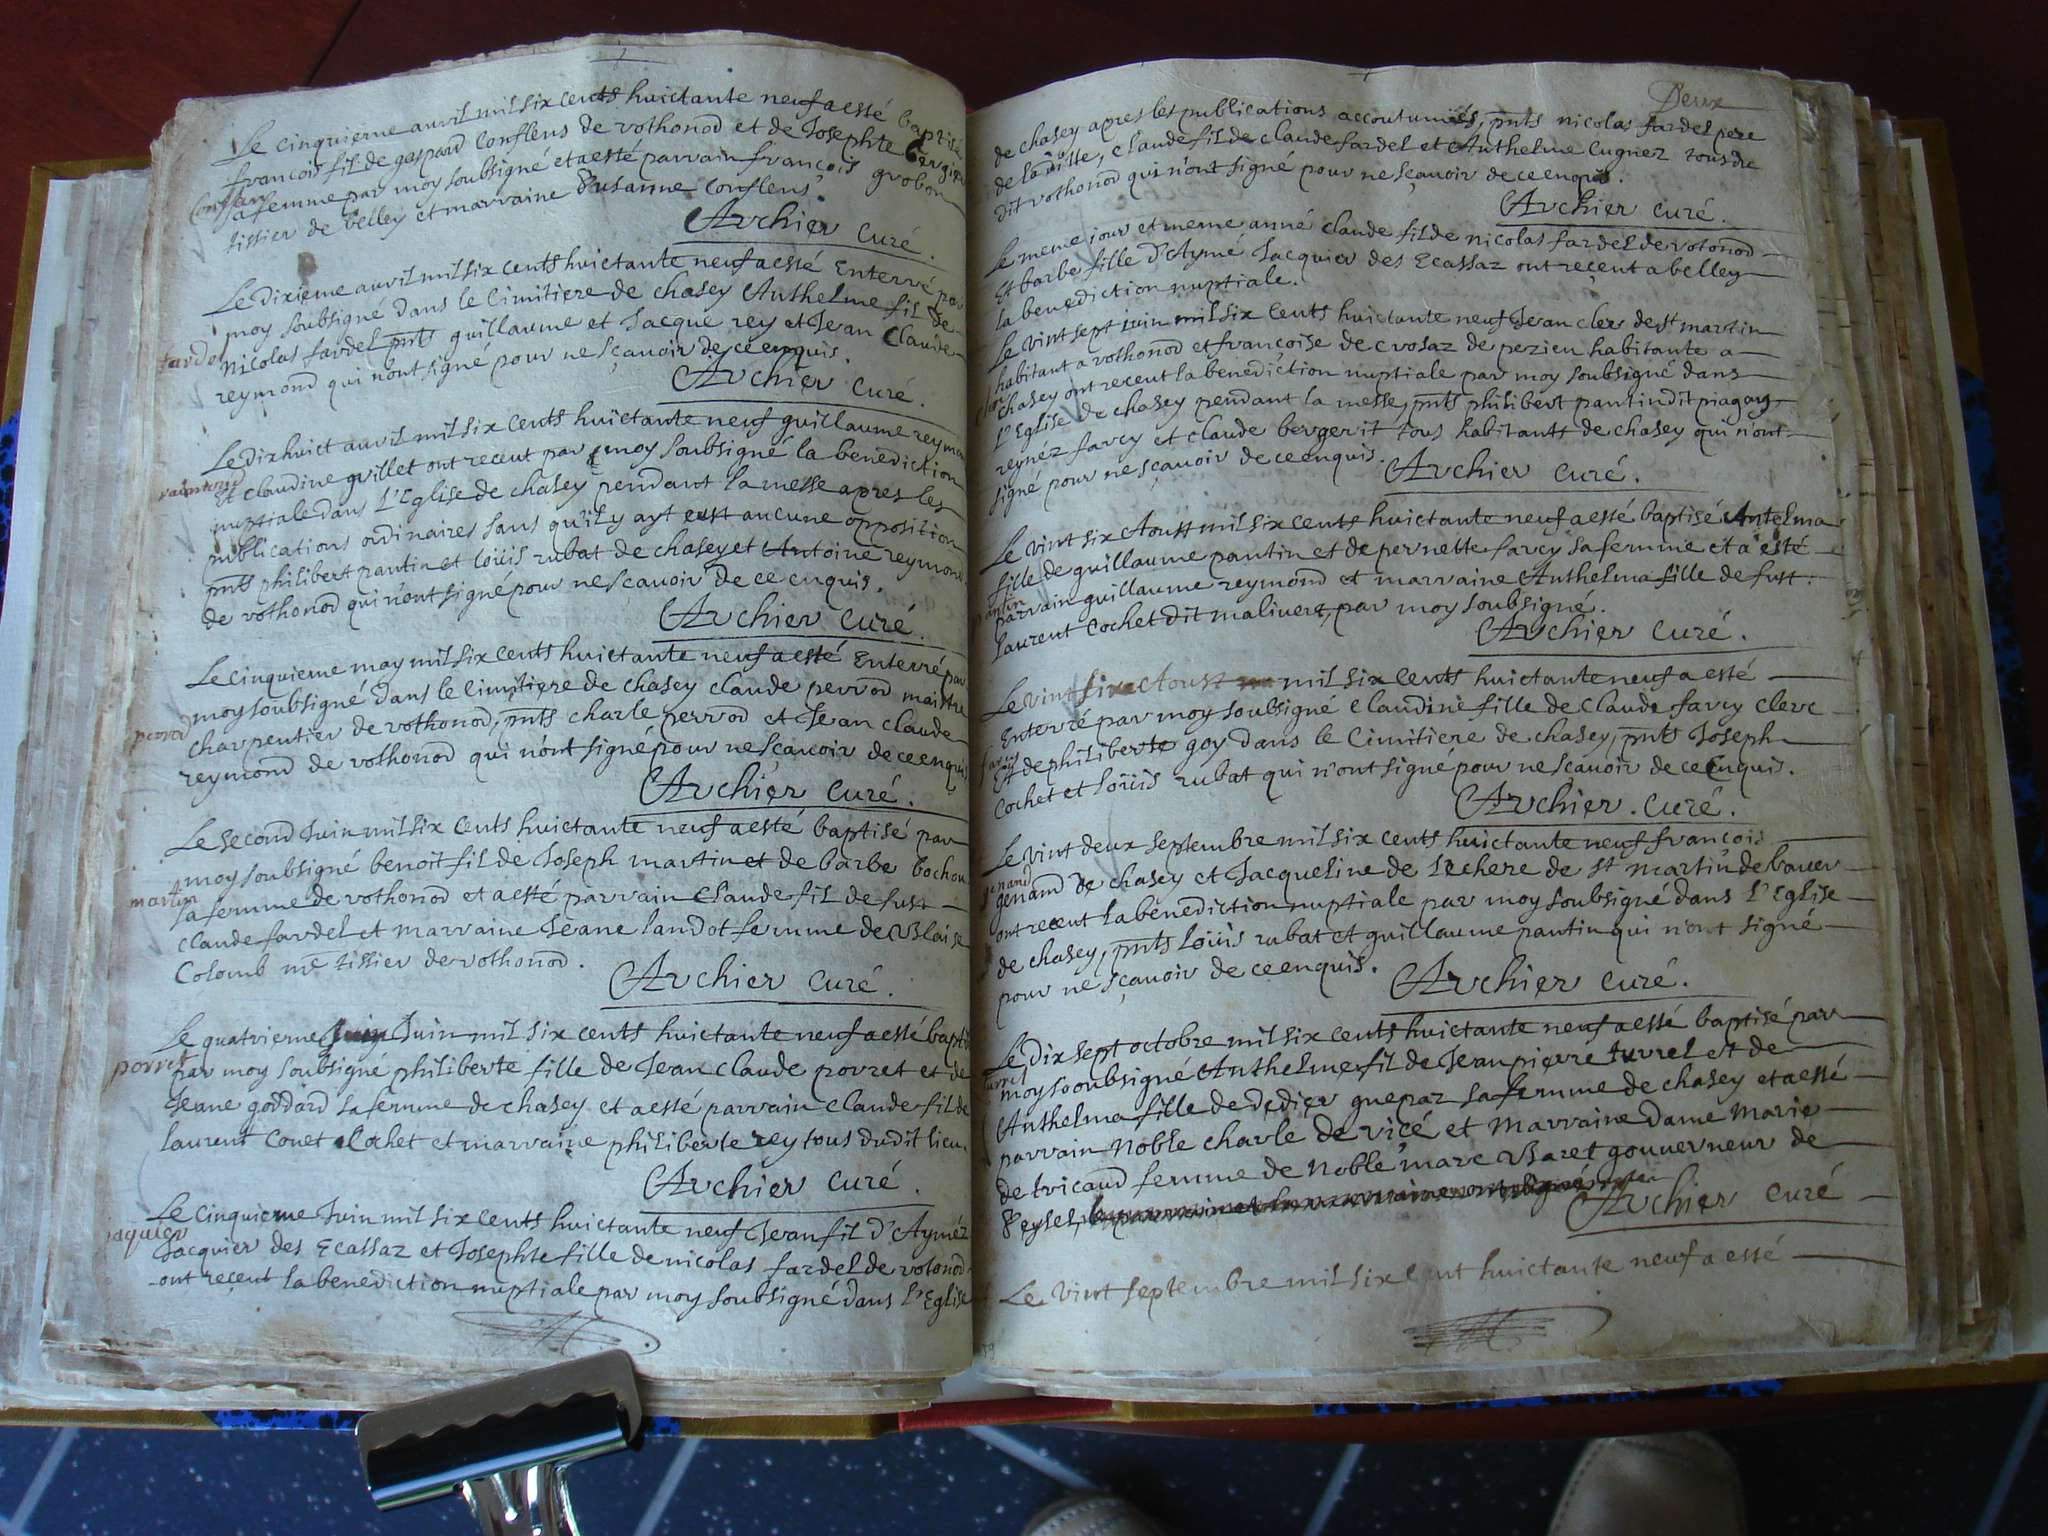 Le cinquieme avril mil six cents huictante neuf a esté baptisé
francois fil de gaspard Conflens de vothonod et de Josephte
sa femme par moy soubsigné et a esté parrain françois grobon
tissier de belley et marraine Susanne Conflens
Archier curé.
Le dixieme avril mil six cents huictante neuf a esté Enterré par
moy soubsigné dans le Cimitiere de chasey Anthelme fil de
fardel
nicolas fardel pnts guillaume et Jacque rey et Jean Claude
reymond qui n'ont signé pour ne sçavoir de ce enquis.
Archier curé.
Le dix huict avril mil six cents huictante neuf guillaume reymond
et claudine guillet ont recent par moy soubsigné la benediction
nuptiale dans l'Eglise de chasey pendant la messe apres les
publications ordinaires sans qu'il y ayt eust aucune opposition
pnts philibert pantin et loüis rubat de chasey et Antoine reymond
de vothonod qui n'ont signé pour ne scavoir de ce enquis.
Archier curé.
Le cinquieme may mil six cents huictante neuf a esté Enterré par
moy soubsigné dans le Cimitiere de chasey claude perrod maistre
perrod
charpentier de vothonod, pnts charle perrod et Jean claude
reymond de vothonod qui n'ont signé pour ne scavoir de ce enquis
Archier curé.
Le second Juin mil six cents huictante neuf a esté baptisé par
moy soubsigné benoit fil de Joseph martin et de barbe bochon
martin
sa femme de vothonod et a esté parrain Claude fil de fust
claude fardel et marraine Jeane landot femme de Blaise
Colomb me tissier de vothonod.
Archier curé.
Le quatrieme Juin mil six cents huictante neuf a esté baptisé
porret
par moy soubsigné philiberte fille de Jean claude porret et de
Jeane goddard sa femme de chasey et a esté parrain claude fil de
laurent Conet Cochet et marraine philiberte rey tous dudit lieu.
Archier curé.
Le cinquieme Juin mil six cents huictante neuf Jean fil d'Aymé
jaquier
Jacquier des Ecassaz et Josephte fille de nicolas fardel de votonod
ont reçent la benediction nuptiale par moy soubsigné dans l'Eglise
Deux
de chasey apres les publications accoutumées, pnts nicolas fardel pere
de la ditte, claude fil de claude fardel et Anthelme Cugnez tous de
dit vothonod qui n'ont signé pour ne sçavoir de ce enquis.
Archier curé.
Le meme jour et meme anné claude fil de nicolas fardel de votonod
Et barbe fille d'Aymé Jacquier des Ecassaz ont reçent a belley
la benediction nuptiale.
Le vint sept iuin mil six cents huictante neuf Jean cler de st martin
habitant a vothonod et francoise de crosaz de pezieu habitante a
chasey ont recent la benediction nuptiale par moy soubsigné dans
l'Eglise de chasey pendant la messe, pnts philibert pantin dit
reynéz farcy et claude bergerit tous habitants de chasey qui n'ont
signé pour ne sçavoir de ce enquis.
Archier curé.
Le vint six Aoust mil six cents huictante neuf a esté baptisé Antelma
fille de guillaume pantin et de pernette farcy sa femme et a esté
pantin
parrain guillaume reymond et marraine Anthelma fille de fust.
laurent Cochet dit malivert, par moy soubsigné.
Archier curé.
Le vint Aoust mil six cents huictante neuf a esté
Enterré par moy soubsigné Claudine fille de Claude farcy clerc
Et de philiberte goy dans le Cimitiere de chasey, pnts Joseph
Cochet et loüis rubat qui n'ont signé pour ne scavoir de ce enquis.
Archier. curé.
Le vint deux septembre mil six cents huictante neuf françois
genand
genand de chasey et Jacqueline de lechere de st martin de baver
ont recent la benediction nuptiale par moy soubsigné dans l'Eglise
de chasey, pnts loüis rubat et guillaume pantin qui n'ont signé
pour ne sçavoir de ce enquis.
Archier curé.
Le dix sept octobre mil six cents huictante neuf a esté baptisé par
turrel
moy soubsigné Anthelme fil de Jean pierre turrel et de
Anthelma fille de Dedier guepaz sa femme de chasey et a esté
parrain Noble charle de vicé et Marraine Dame Marie
de tricaud femme de Noble marc Baret gouverneur de
Seyssel,
Archier curé
Le vint septembre mil six cent huictante neuf a esté